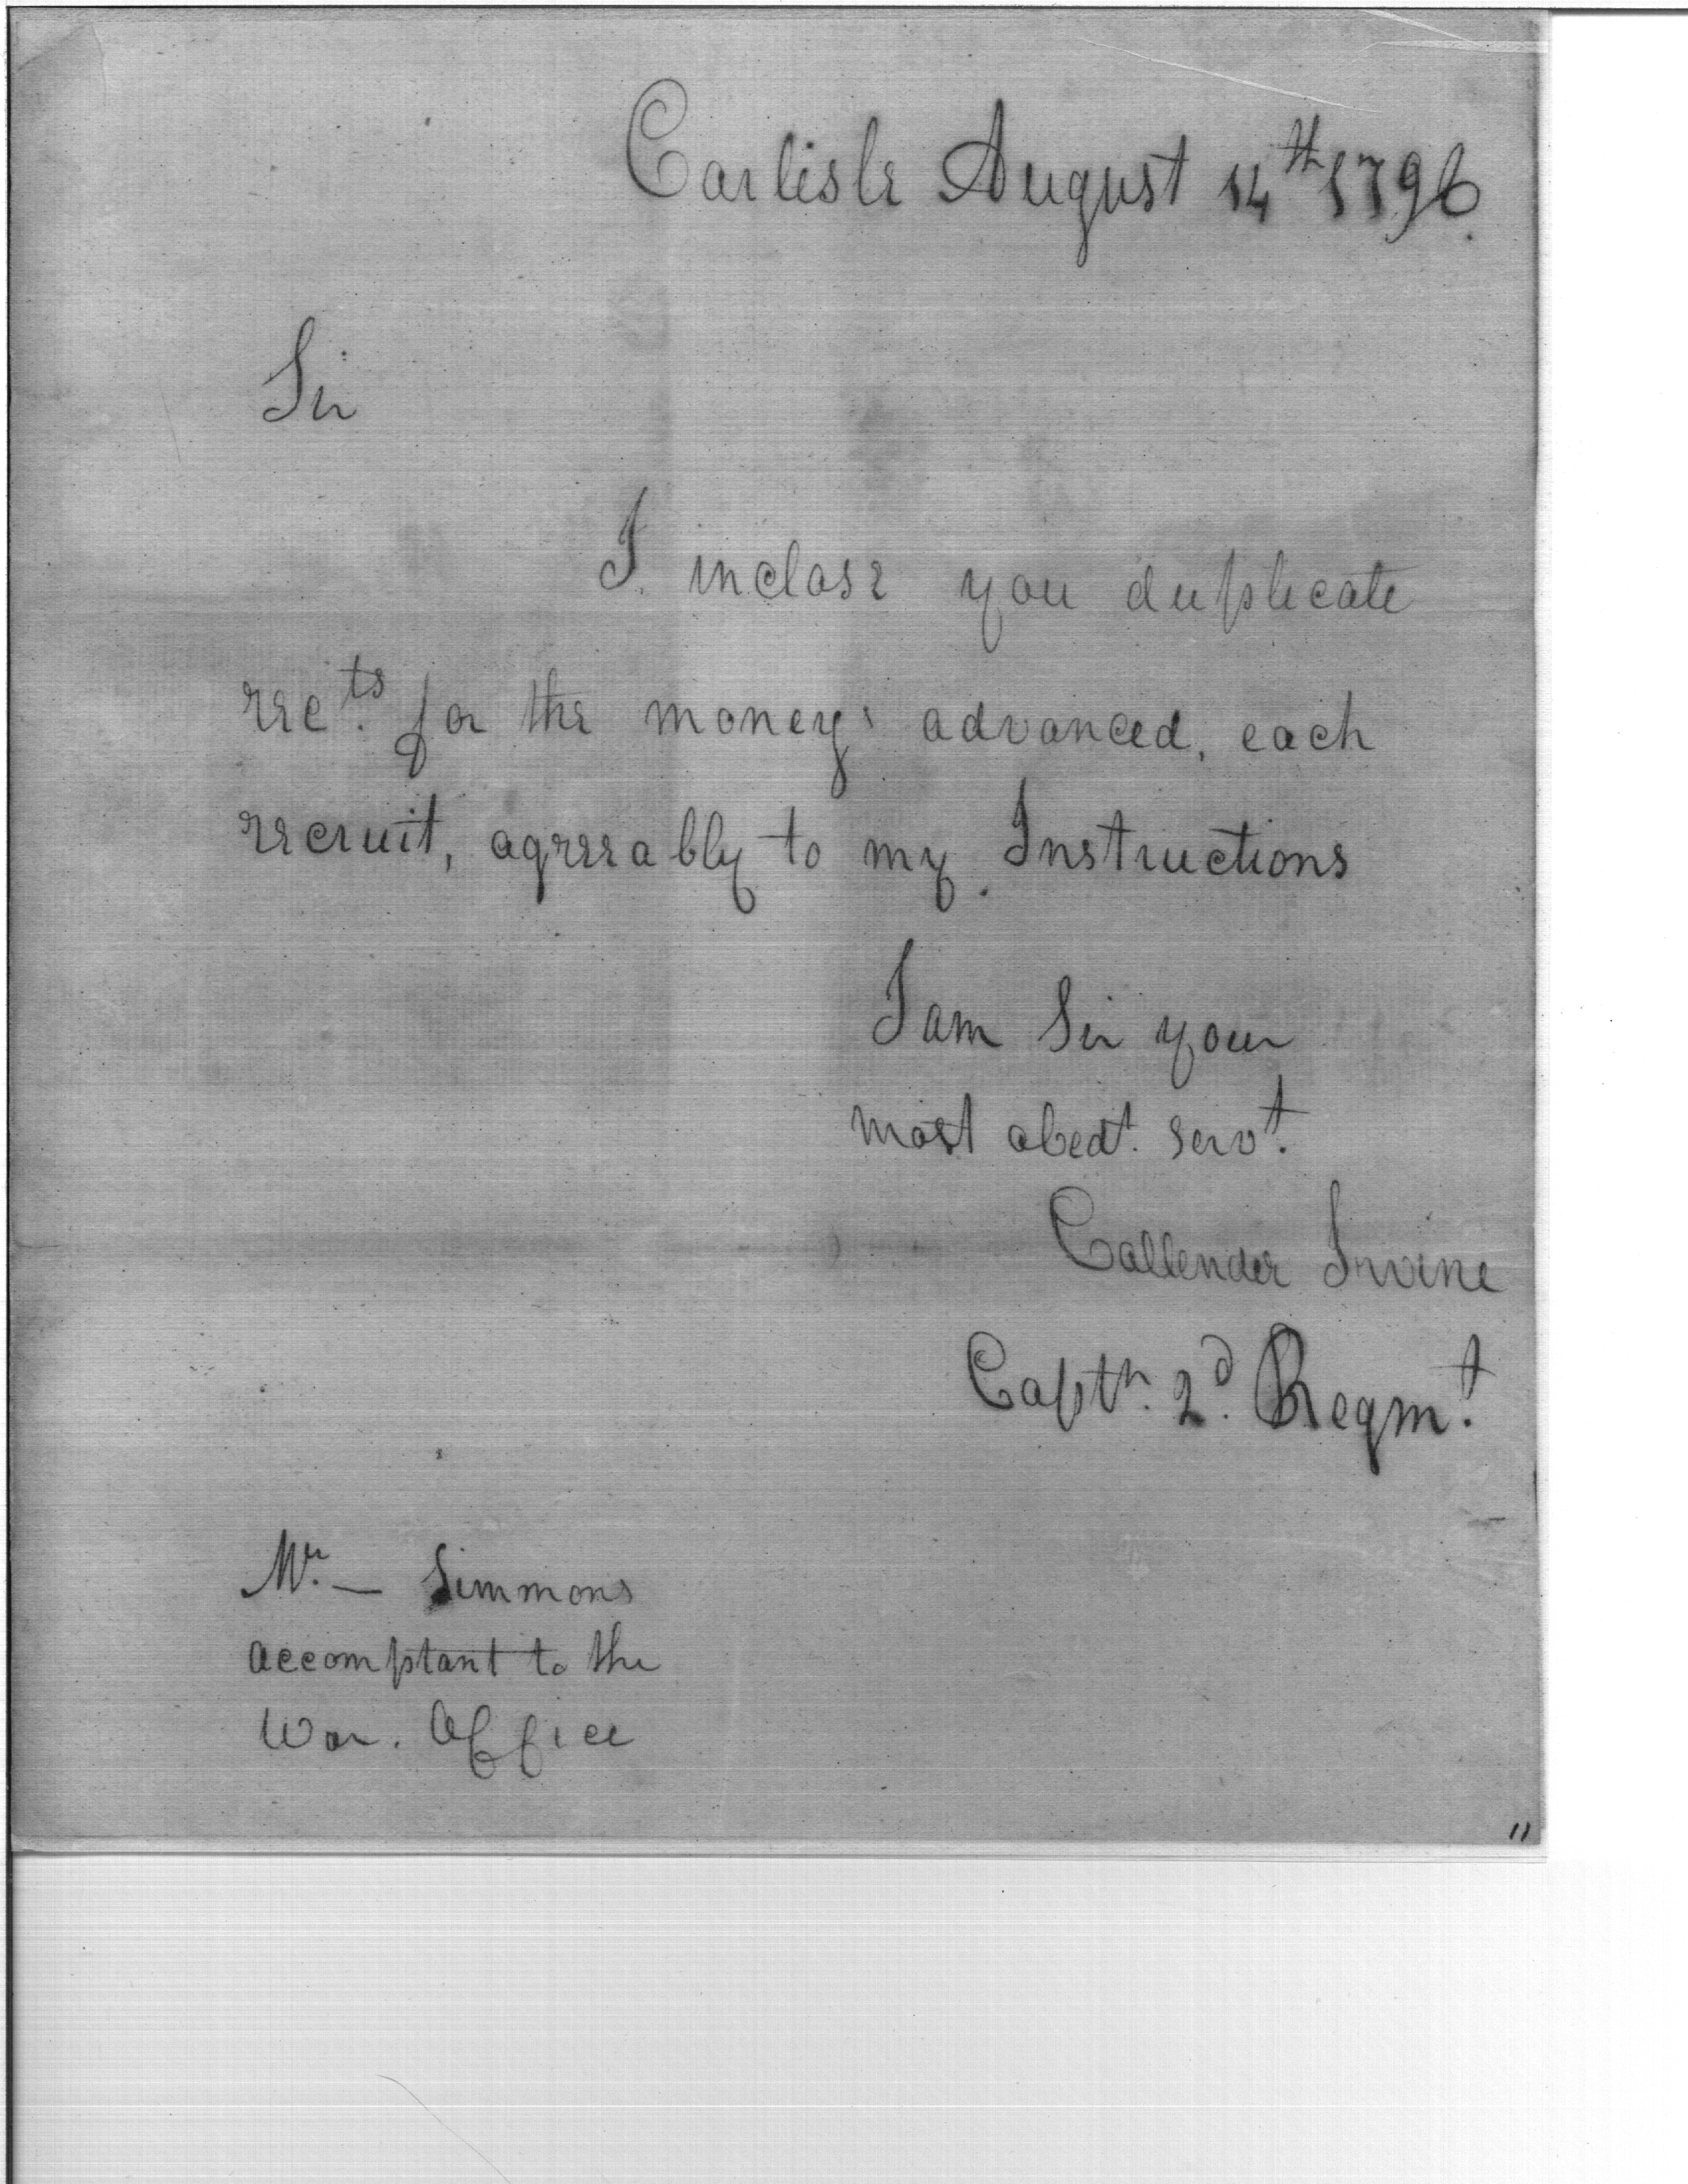 Carlisle August 14th 1796.
Sir
I inclose you duplicate
rects. for the moneys advanced, each
recruit, agreeably to my Instructions
I am Sir your
most obedt. servt.
Callender Irvine
Captn. 2d. Regmt.
Mr. — Simmons
accomptant to the
War. Office
11